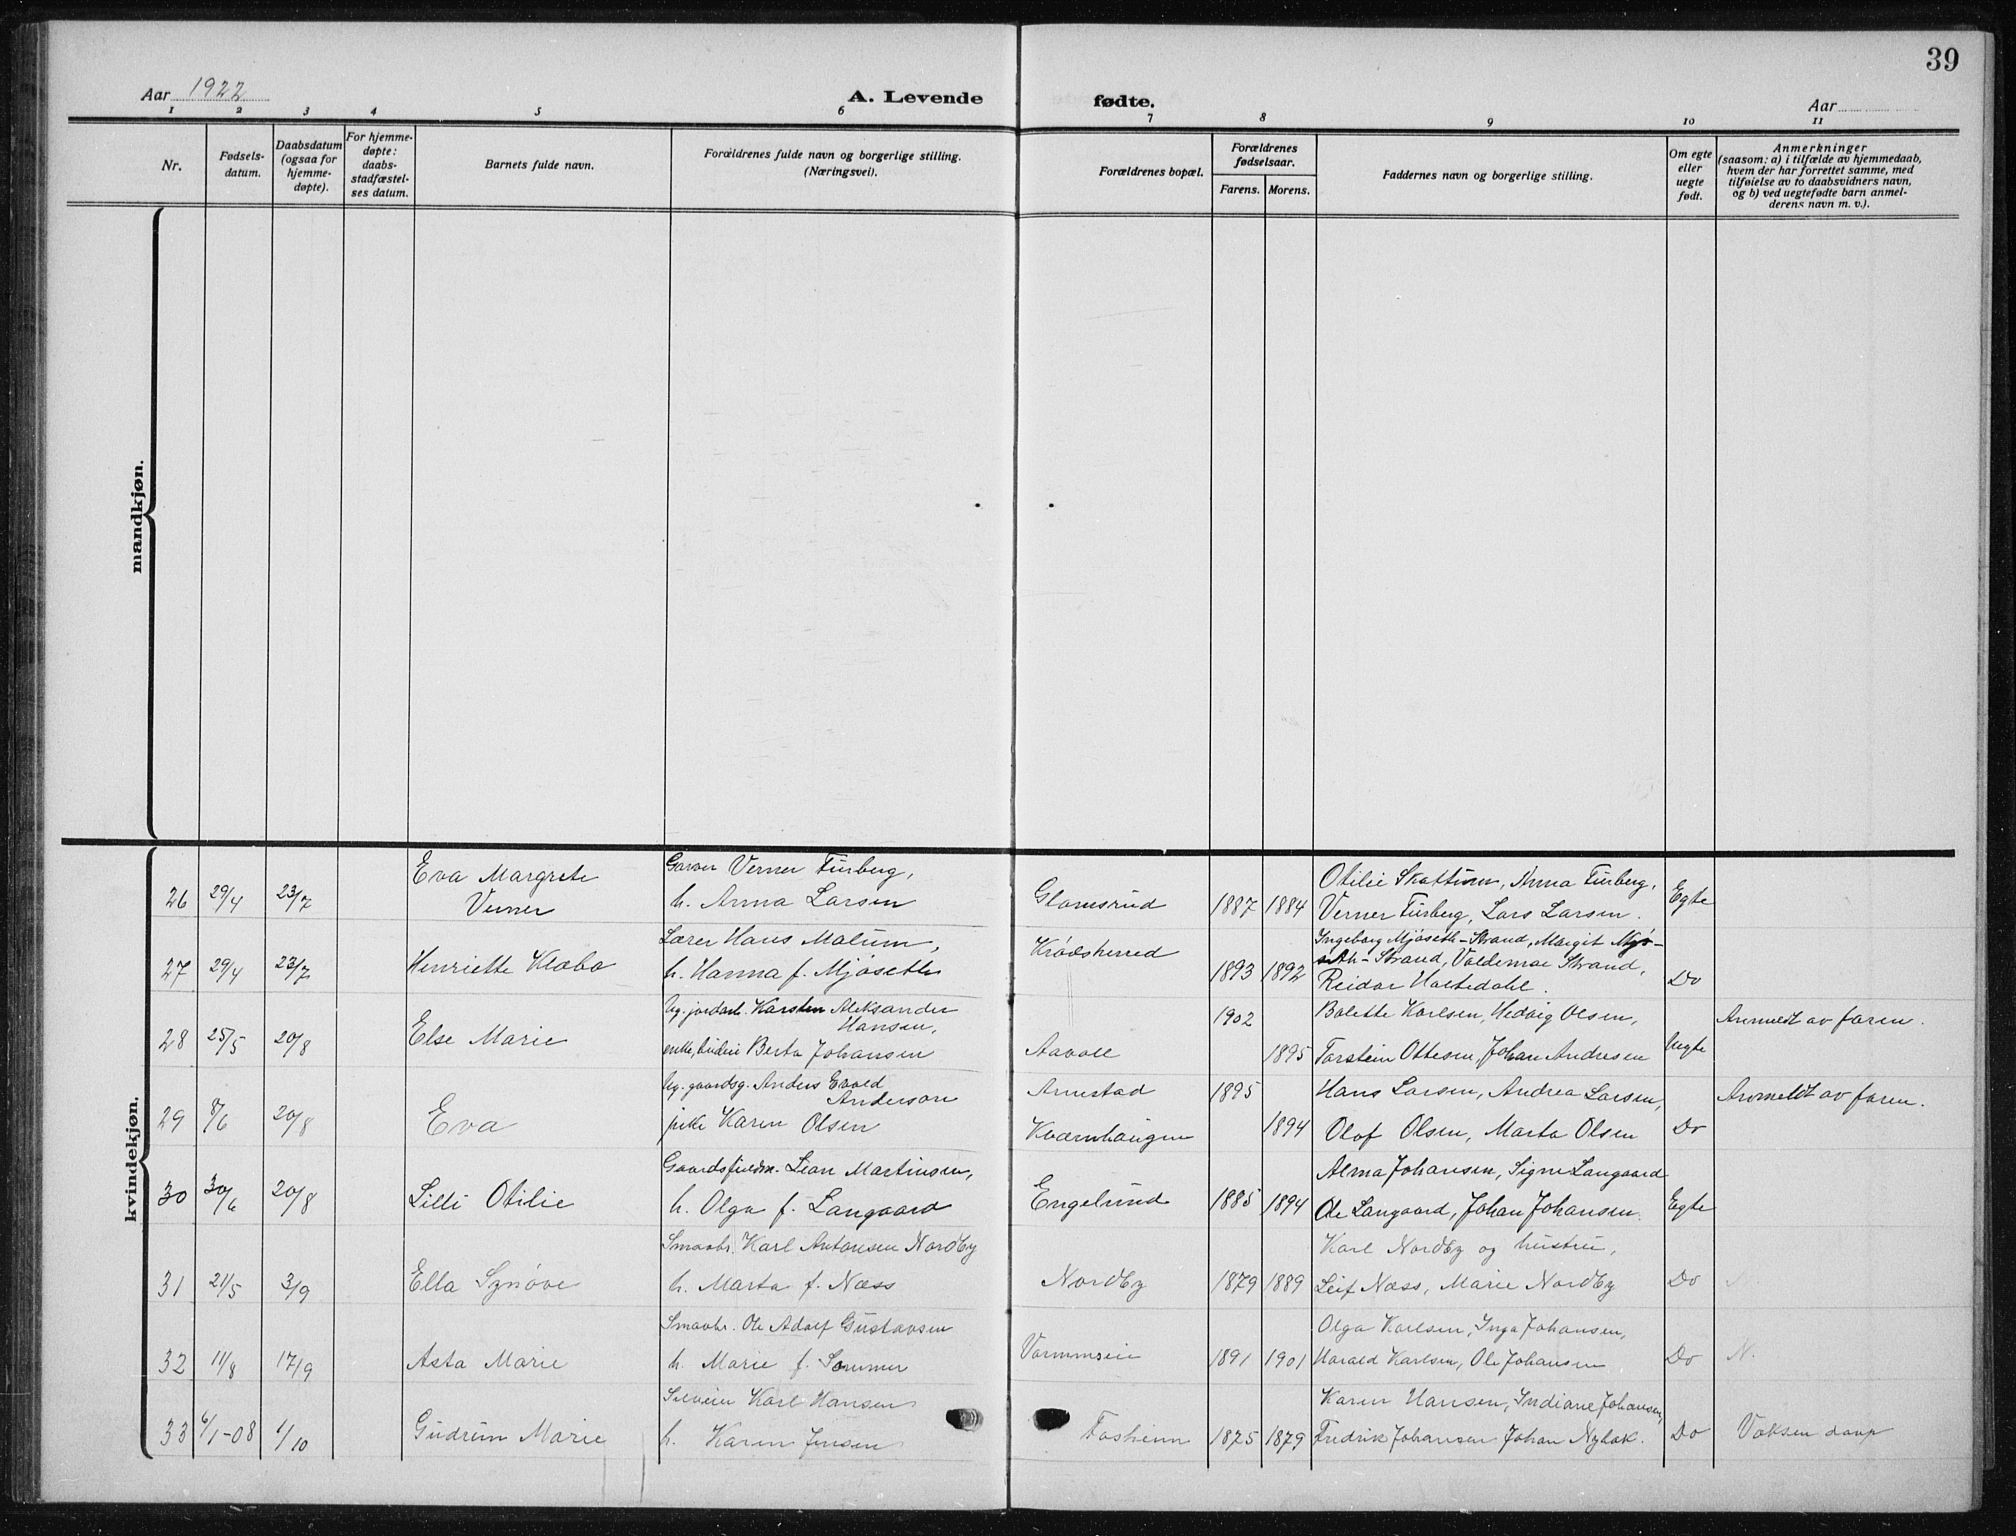 39
Aar 1922
A. Levende
fødte.
Aar
1 2 3 4 5 6 7 8 9 10 11
Nr.
Fødsels-
datum.
Daabsdatum
(ogsaa for
hjemme-
døpte).
For hjemme-
døpte:
daabs-
stadfæstel-
ses datum.
Barnets fulde navn.
Forældrenes fulde navn og borgerlige stilling.
(Næringsvei).
Forældrenes bopæl.
Forældrenes
fødselsaar.
Farens. Morens.
Faddernes navn og borgerlige stilling.
Om egte
eller
uegte
født.
Anmerkninger
(saasom: a) i tilfælde av hjemmedaab,
hvem der har forrettet samme, med
tilføielse av to daabsvidners navn,
og b) ved uegtefødte barn anmel-
derens navn m. v.).
mandkjøn.
kvindekjøn.
26 29/4 23/7
Eva Margrete
Verner
Garver Verner Furberg,
h. Anna Larsen
Glomsrud
1887 1884
Otilie Skattum, Anna Furberg,
Verner Furberg, Lars Larsen.
Egte
27 29/4 23/7
Henriette Klæbo
Lærer Hans Malum,
h. Hanna f. Mjøseth
Krødsherred
1893 1892
Ingeborg Mjøseth-Strand, Margit Mjø-
seth-Strand, Valdemar Strand,
Reidar Holtedahl.
Do
28 25/5 20/8
Else Marie
Ug. jordarb. Karsten Aleksander
Hansen,
enke, budeie Berta Johansen
Aavoll
1902
1895
Bolette Karlsen, Hedvig Olsen,
Torstein Ottesen, Johan Andresen
Uegte
Anmeldt av faren.
29 8/6 20/8
Eva
Ug. gaardsg. Anders Evald
Anderson
pike Karen Olsen
Arnestad
Kværnhaugen
1895
1894
Hans Larsen, Andrea Larsen,
Olof Olsen, Marta Olsen
Do
Anmeldt av faren.
30 30/6 20/8
Lilli Otilie
Gaardsfuldm. Sian Martinsen,
h. Olga f. Langaard
Engelsrud
1885 1894
Alma Johansen, Signe Langaard
Ole Langaard, Johan Johansen.
Egte
31 21/5 3/9
Ella Synøve
Smaabr. Karl Antonsen Nordby
h. Marta f. Næss
Nordby
1879 1889
Karl Nordby og hustru,
Leif Næss, Marie Nordby
Do
N
32 11/8 17/9
Asta Marie
Smaabr. Ole Adolf Gustavsen
h. Marie f. Sommer
1891 1901
Olga Karlsen, Inga Johansen,
Harald Karlsen, Ole Johansen
Do
N.
33 6/1-08 1/10
Gudrun Marie
Karl Hansen
h. Karen Jensen
Fosheim
1875 1879
Karen Hansen, Indiane Johansen,
Fredrik Johansen Johan Nybak.
Do
Voksen daap